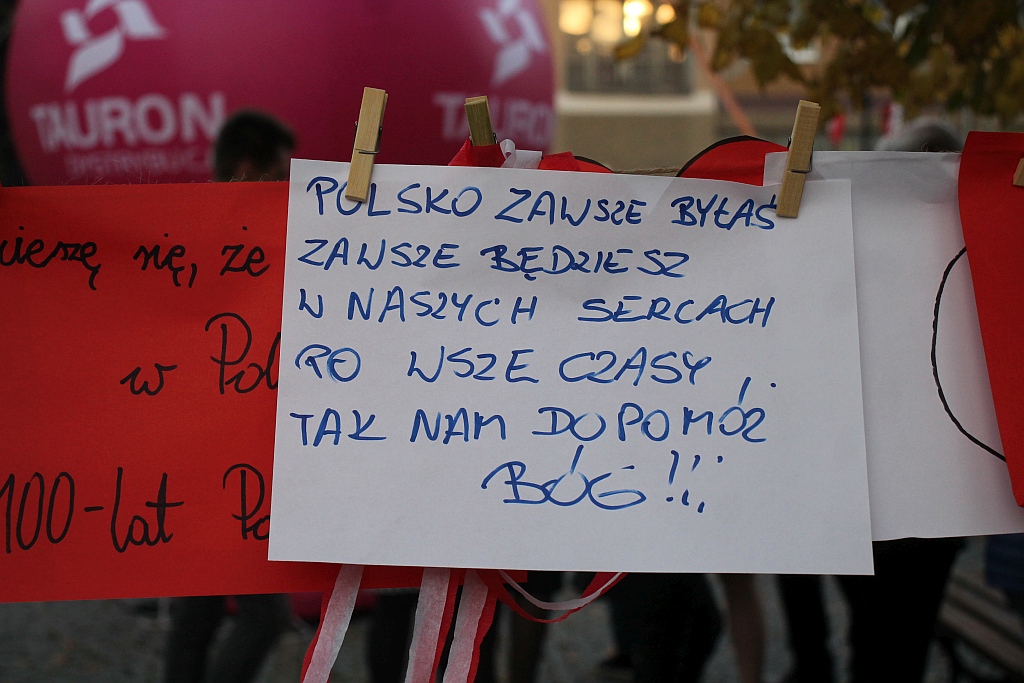 TAURON
DYSTRYBUCJA
TAURON
POLSKO ZAWSZE BYŁAŚ
ZAWSZE BĘDZIESZ
W NASZYCH SERCACH
PO WSZE CZASY
TAK NAM DOPOMÓŻ
BÓG!!!
się, że
w Pol
100-lat Po